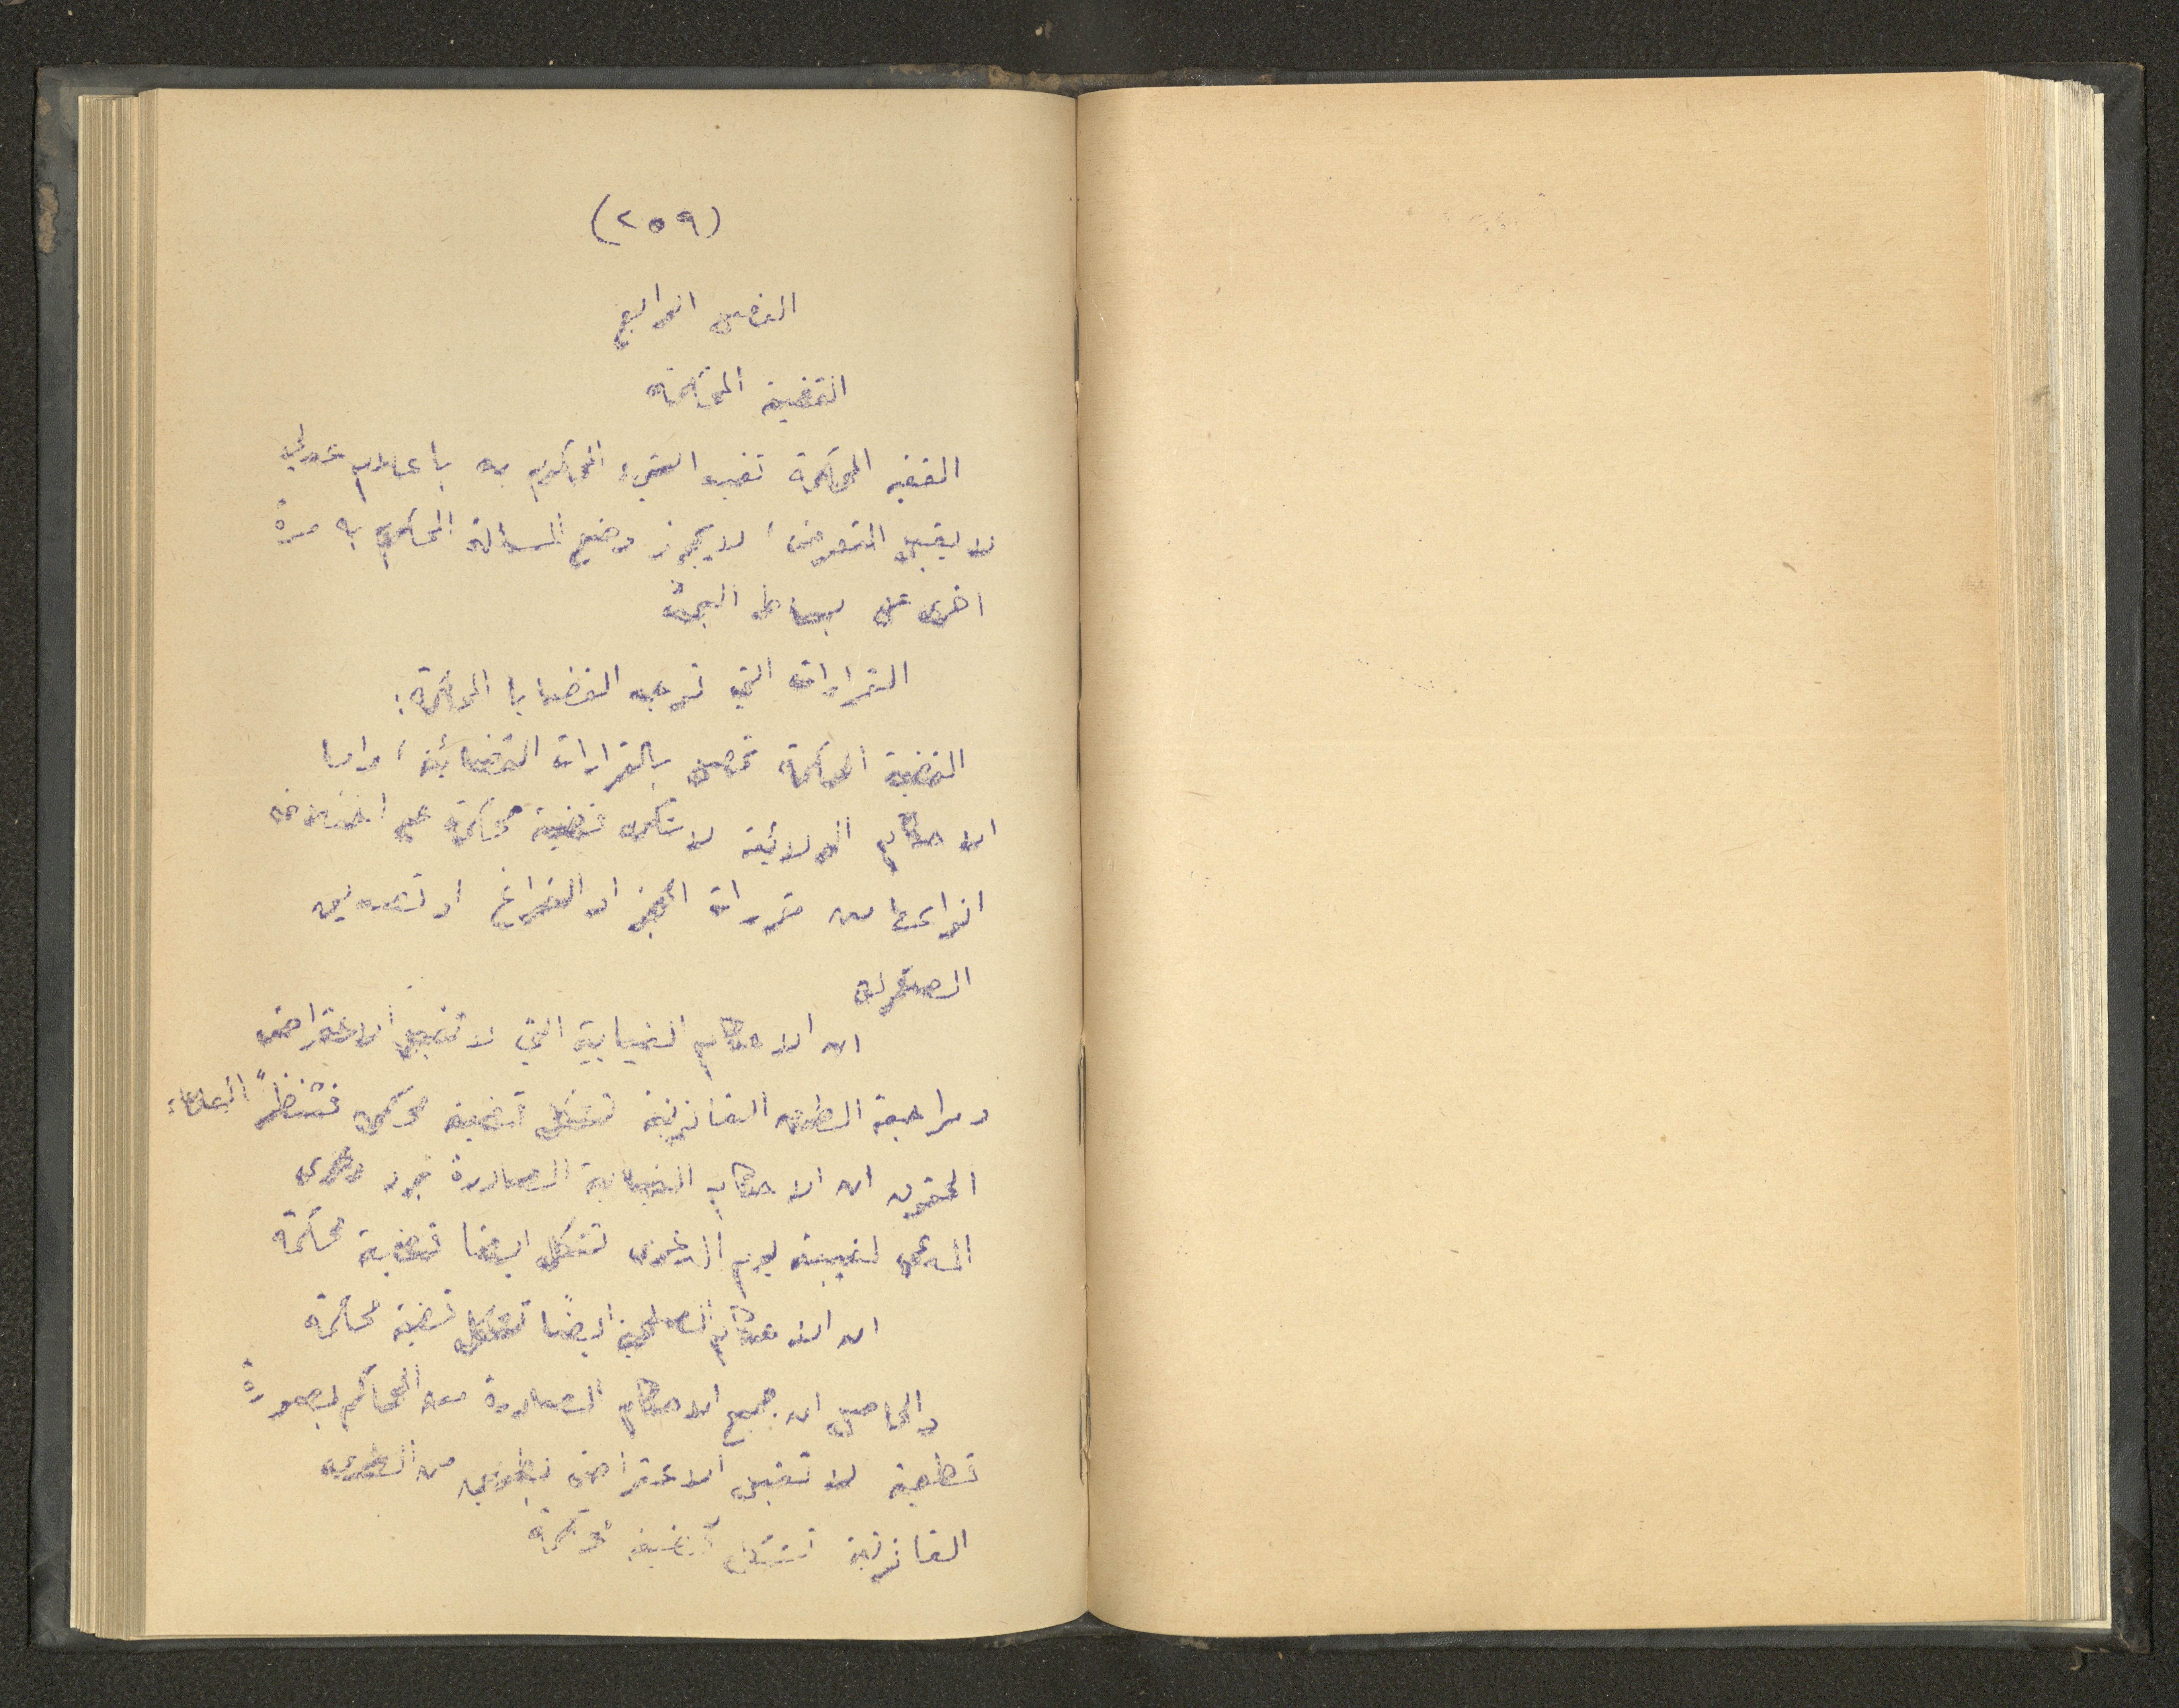 (٢٥٩)
الفصل الرابع
القضية المحكمة
القضية المحكمة تفيد الشيء المحكوم به باعلام عدلي
لا يقبل التعرض، لا يجوز وضع المسالة المحكوم به مرة
اخرى على بساط البحث
القرارات التي توجب القضايا المحكمة:
القضية المحكمة تحصل بالقرارات القضائية، واما
الاحكام الولائية لا تشكل قضية محكمة على اختلاف
انواعها من مقررات الحجز او الفراغ او تصديق
ان الاحكام الغيابية التي لا تقبل الاعتراض
ومراجعة الطرق القانونية تشكل قضية محكمة فتنظر العلماء
الحقوق ان الاحكام الغيابية الصادرة برد دعوى
المدعي لغيبته يوم الدعوى تشكل ايضا قضية محكمة
ان الاحكام الصلحية ايضًا تشكل قضية محكمة
والحاصل ان جميع الاحكام الصادرة من المحاكم بصورة
قطعية لا تقبل الاعتراض بطريق من الطرق
القانونية تشكل قضية محكمة